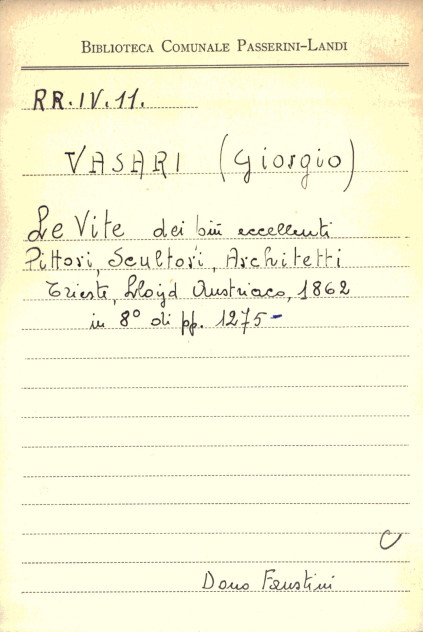 Biblioteca Comunale Passerini-Landi
RR.IV.11.
VASARI (Giorgio)
Le Vite dei più eccellenti
Pittori, Scultori, Architetti
Trieste, Lloyd Austriaco, 1862
in 8° di pp. 1275-
C
Dono Faustini